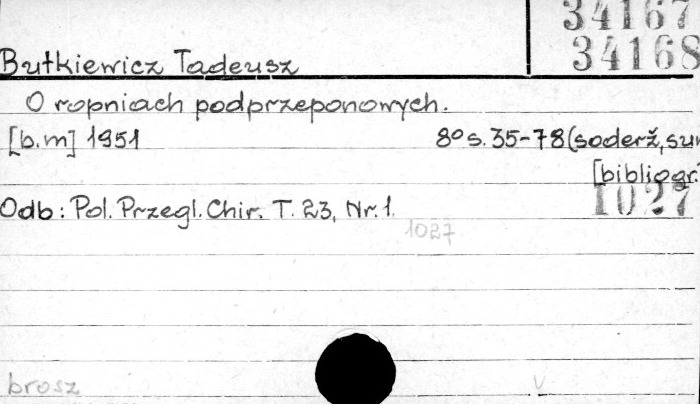 34167
34168
Butkiewicz Tadeusz
O ropniach podprzeponowych.
[b.m] 1951 8º s. 35-78 (soderž, sum
[bibliogr.
1027
Odb: Pol. Przegl. Chir. T. 23, Nr. 1.
1027
brosz v